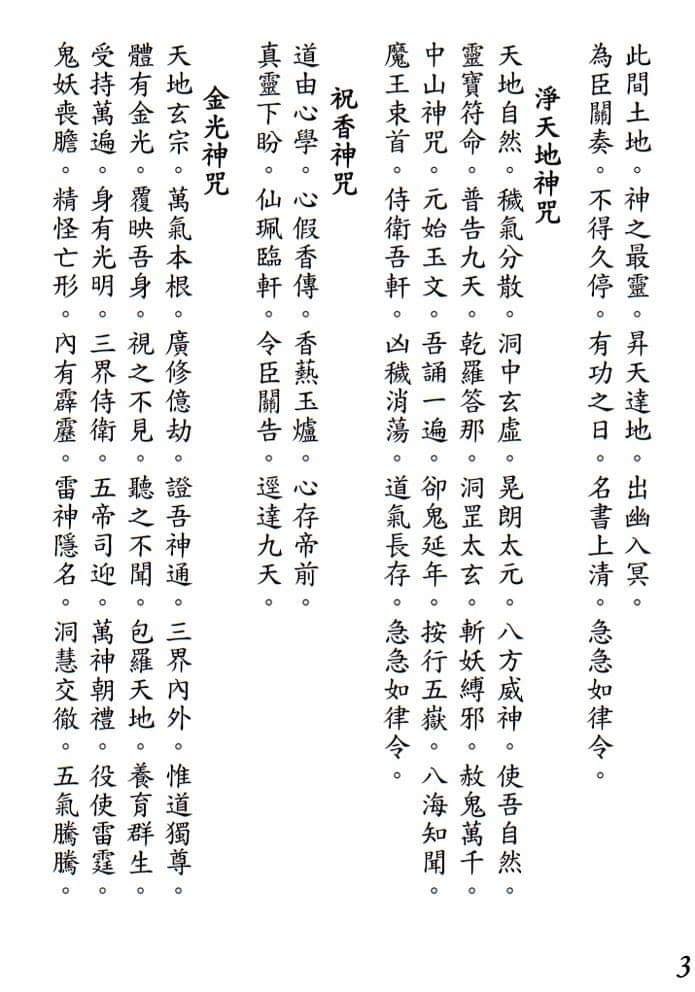 此間土地。神之最靈。昇天達地。出幽入冥。
為臣關奏。不得久停。有功之日。名書上清。急急如律令。
淨天地神咒
天地自然。穢氣分散。洞中玄虛。晃朗太元。八方威神。使吾自然。
靈寶符命。普告九天。乾羅答那。洞罡太玄。斬妖縛邪。赦鬼萬千。
中山神咒。元始玉文。吾誦一遍。卻鬼延年。按行五嶽。八海知聞。
魔王束首。侍衛吾軒。凶穢消蕩。道氣長存。急急如律令。
祝香神咒
道由心學。心假香傳。香爇玉爐。心存帝前。
真靈下盼。仙珮臨軒。令臣關告。逕達九天。
金光神咒
天地玄宗。萬氣本根。廣修億劫。證吾神通。三界內外。惟道獨尊。
體有金光。覆映吾身。視之不見。聽之不聞。包羅天地。養育群生。
受持萬遍。身有光明。三界侍衛。五帝司迎。萬神朝禮。役使雷霆。
鬼妖喪膽。精怪亡形。內有霹靂。雷神隱名。洞慧交徹。五氣騰騰。
3